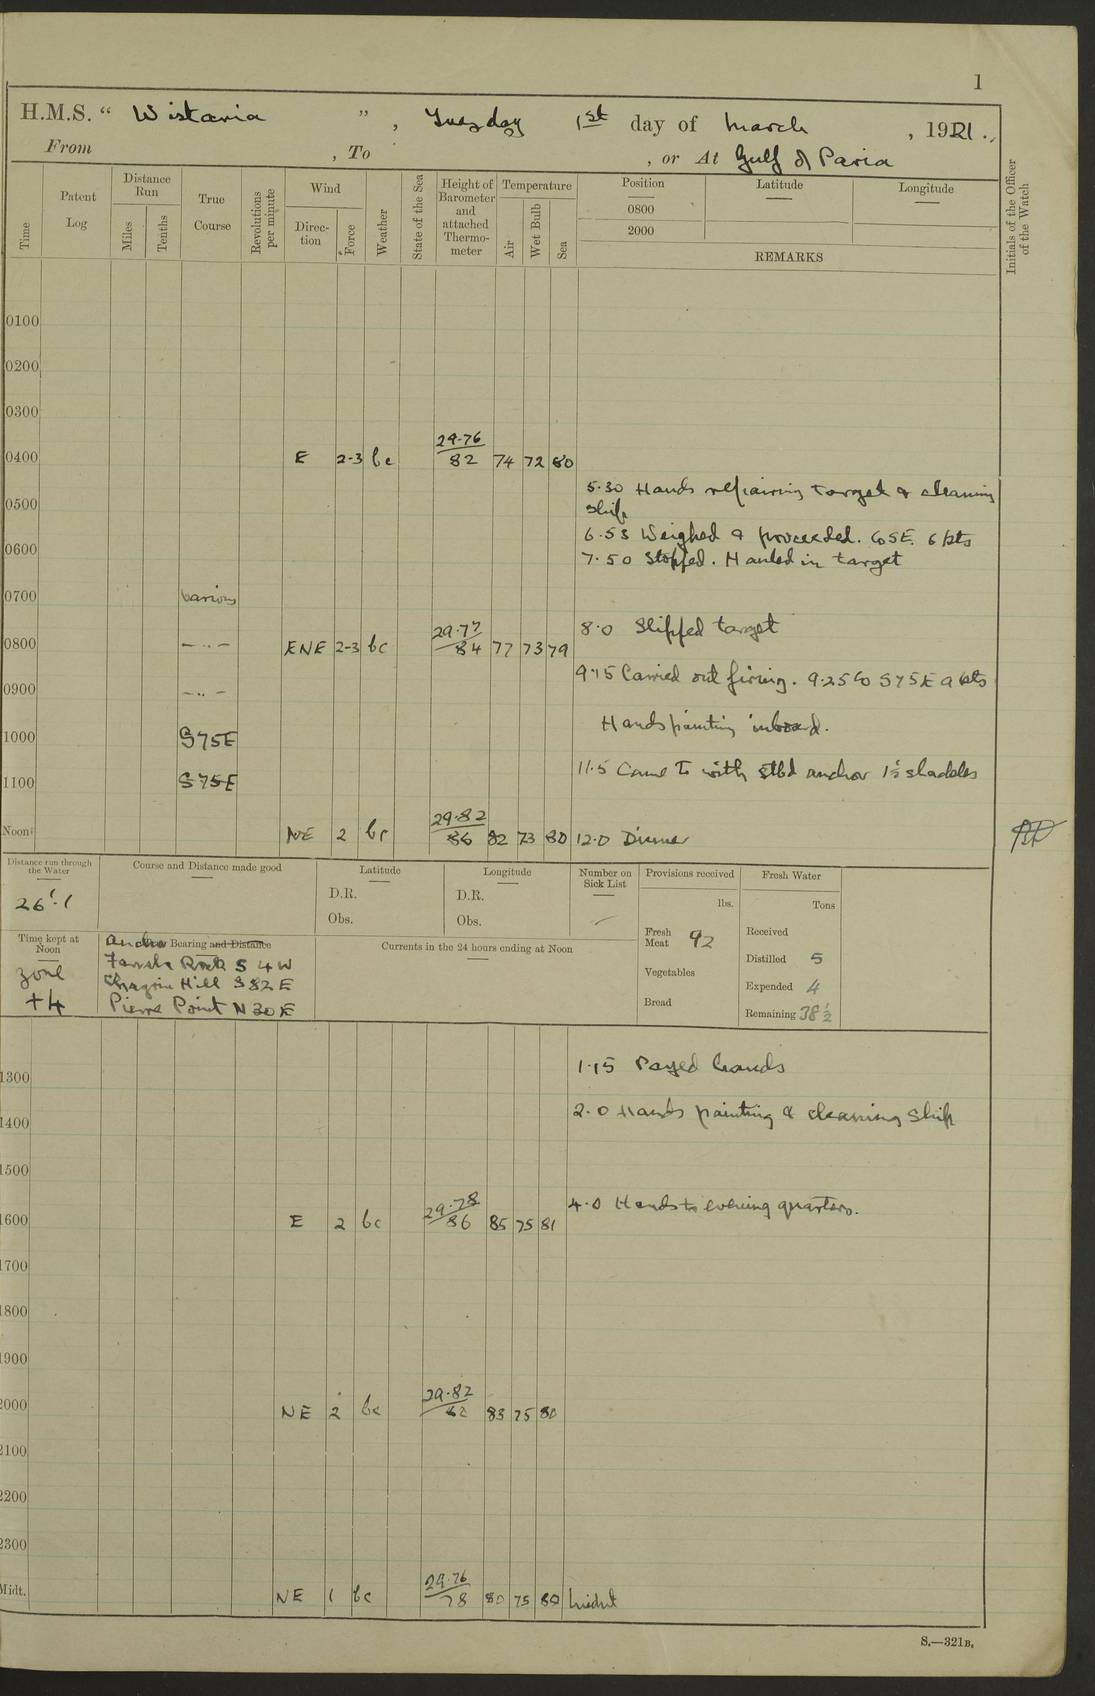 1
H.M.S. “ Wistaria ” , Tuesday 1st day of March , 1921 .
From , To , or At Gulf of Paria
Time
Patent Log
Distance Run
Miles
Tenths
True Course
Revolutions per minute
Wind
Direc-tion
Force
Weather
State of the Sea
Height of Barometer and attached Thermo-meter
Temperature
Air
Wet Bulb
Sea
Position
0800
2000
Latitude
Longitude
REMARKS
Initials of the Officer of the Watch
0100
0200
0300
0400 E 2-3 bc 29.76 82 74 72 80
5.30 Hands repairing target & cleaning
ship
0500
6.53 Weighed & proceeded. Co SE. 6 kts
0600 7.50 Stopped. Hauled in target
0700 various
8.0 Slipped target
0800 — .. — ENE 2-3 bc 29.77 84 77 73 79
9.15 Carried out firing. 9.25 Co S75E 9 kts
0900 — .. —
Hands painting inboard.
1000 S75E
11.5 Came to with stbd anchor 1½ shackles
1100 S75E
Noon NE 2 bc 29.82 86 82 73 80 12.0 Dinner
Distance run through the Water
26'.1
Course and Distance made good
Latitude
D.R.
Obs.
Longitude
D.R.
Obs.
Number on Sick List
Provisions received
lbs.
Fresh Meat 92
Vegetables
Bread
Fresh Water
Tons
Received
Distilled 5
Expended 4
Remaining 38½
Time kept at Noon
zone
+4
Anchor Bearing and Distance
Rock S 4 W
Hill S 82 E
Pierre Point N 30 E
Currents in the 24 hours ending at Noon
1.15 Payed hands
1300
2.0 Hands painting & cleaning ship
1400
1500
4.0 Hands to evening quarters.
1600 E 2 bc 29.78 86 85 75 81
1700
1800
1900
2000 NE 2 bc 29.82 82 83 75 80
2100
2200
2300
Midt. NE 1 bc 29.76 78 80 75 80
S.—321B.